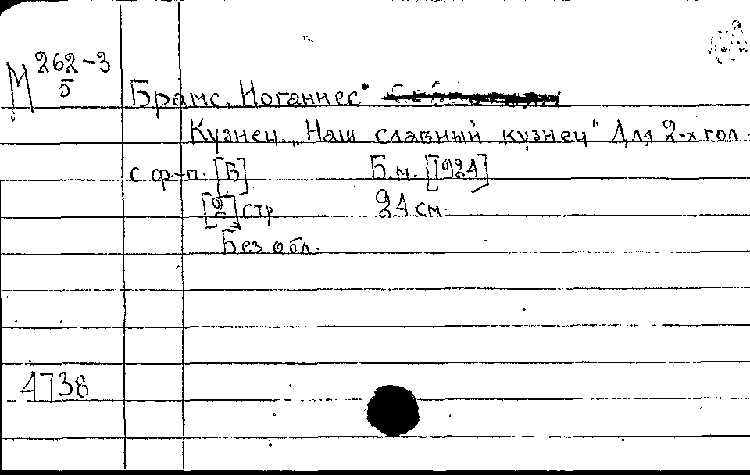 М 262-3
Б
Брамс, Иоганнес
Кузнец. „Наш славный кузнец" Для 2-х гол.
с ф-п. [В] Б.м. [1924]
[2] стр. 24 см.
Без обл.
4738